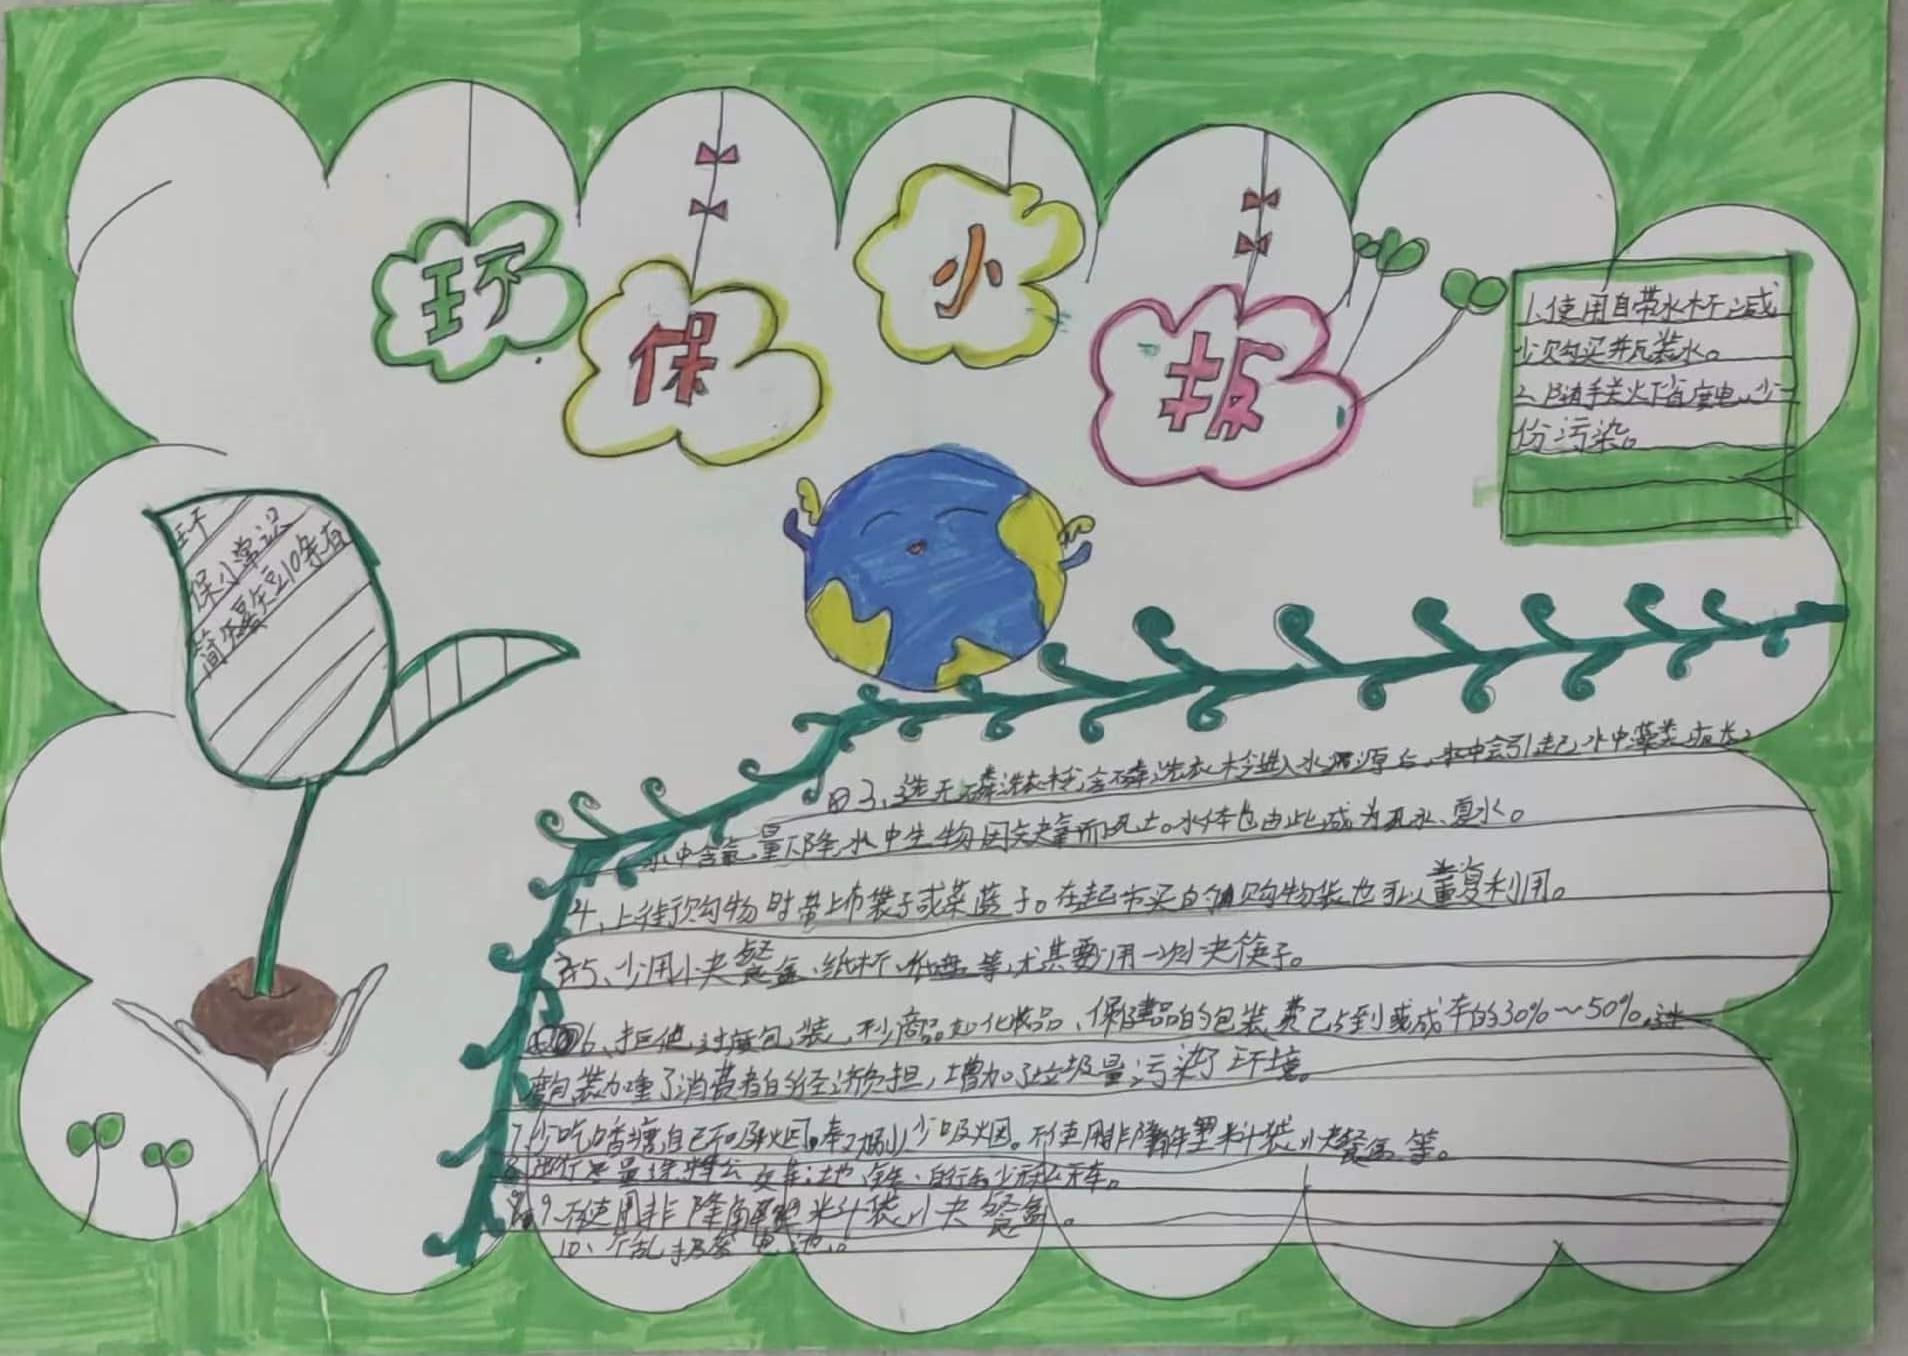 环保小报
1、使用自带水杯,减
少购买并瓦装水。
2、随手关火丁省度电,少一
份污染。
环
保小常识
简要知10条有
3、选无磷洗衣粉,含磷洗衣粉进入水源后,水中会引起水中藻类疯长,
水中含氧量下降,水中生物因缺氧而死亡。水体也由此成为死水、臭水。
4、上街购物时带上布袋子或菜蓝子。在超市买的购物袋也可以重复利用。
5、少用小夹餐盒、纸杯、纸盘等,尤其要用一次小夹筷子。
6、拒绝过度包装,不少商品如化妆品、保健品的包装费已占到成本的30%~50%。过
度包装加重了消费者的经济负担,增加了垃圾量,污染了环境。
7、少吃口香糖,自己不吸烟,奉劝别少吸烟。不使用非降解塑料袋小夹餐盒等。
8、出行尽量选择公交车、地铁、自行车,少开私车。
9、不使用非降解塑米斗袋小夹餐盒。
10、个乱扔菜电池。